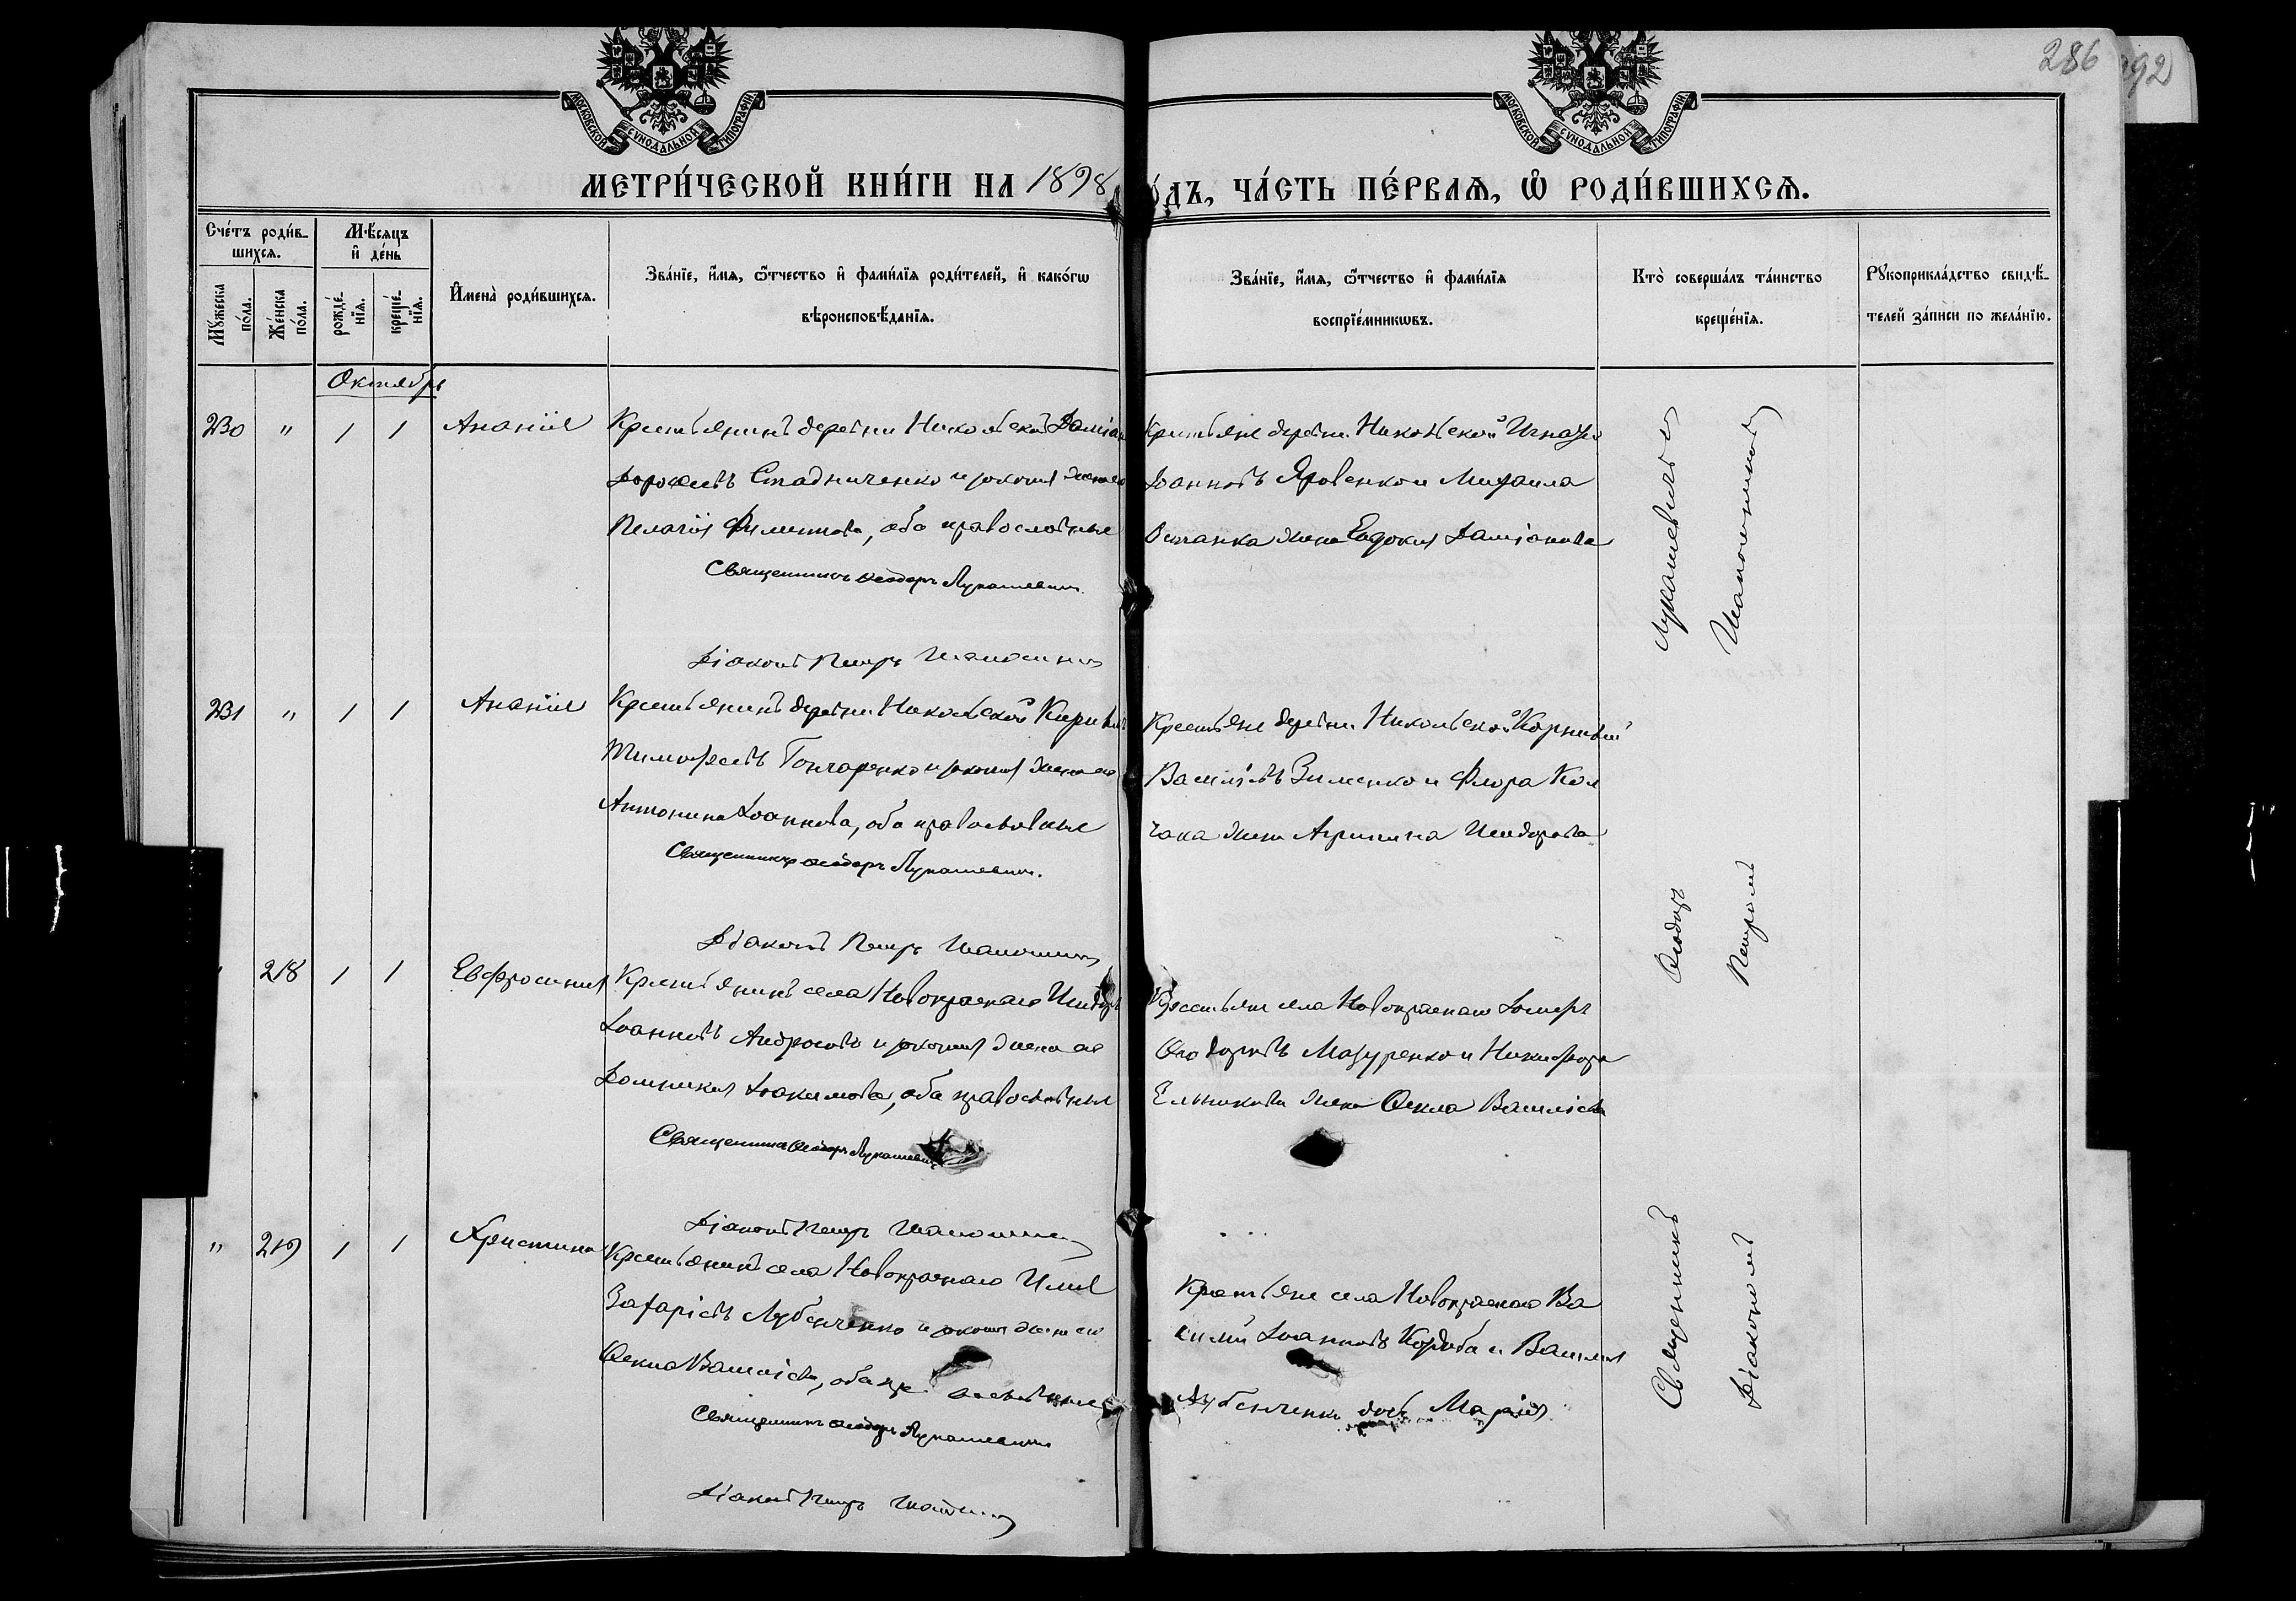 286
292
МОСКОВСКОЙ СѴНОДАЛЬНОЙ ТИПОГРАФІИ
МОСКОВСКОЙ СѴНОДАЛЬНОЙ ТИПОГРАФІИ
МЕТРИ́ЧЕСКОЙ КНИ́ГИ НА 1898 ГО́ДЪ, ЧА́СТЬ ПЕ́РВАѦ, Ѡ҆ РОДИ́ВШИХСѦ.
Сче́тъ роди́в-
шихсѧ.
Мꙋ́жеска
по́ла.
Же́нска
по́ла.
Мѣ́сѧцъ
и҆ де́нь
рожде́-
нїѧ.
креще́-
нїѧ.
И҆мена̀ роди́вшихсѧ.
Зва́нїе, и҆́мѧ, ѻ҆́тчество и҆ фами́лїѧ роди́телей, и҆ како́гѡ
вѣроисповѣ́данїѧ.
Зва́нїе, и҆́мѧ, ѻ҆́тчество и҆ фами́лїѧ
воспрїе́мникѡвъ.
Кто̀ соверша́лъ та́инство
креще́нїѧ.
Рꙋкоприкла́дство свидѣ́-
телей за́писи по жела́нїю.
Октябрь
230 " 1 1 Ананія
Крестьянинъ деревни Никольской Даміанъ
Дорофеевъ Стадниченко и законная жена его
Пелагія Филиппова, оба православные
Священникъ Ѳеодоръ Лукашевичъ.
Діаконъ Петръ
Крестьяне деревни Никольской Игнатій
Іоанновъ Яровенко и Михаила
жена Евдокія Даміанова
231 " 1 1 Ананія
Крестьянинъ деревни Никольской Кириллъ
Тимофеевъ Гончаренко и законная жена его
Антонина Іоаннова, оба православные
Священникъ Ѳеодоръ Лукашевичъ.
Діаконъ Петръ
Крестьяне деревни Никольской Корнилій
Василіевъ Зименко и Флора Кол
чака жена Агрипина Исидорова
" 218 1 1 Евфросинія
Крестьянинъ села Новокраснаго Исидоръ
Іоанновъ Андросовъ и законная жена его
Домникія Іоакимова, оба православные
Священникъ Ѳеодоръ Лукашевичъ
Діаконъ Петръ
Крестьяне села Новокраснаго Іосифъ
Ѳеодоровъ Мазуренко и Никифора
Ельникова жена Ѳекла Василіева
" 219 1 1 Христина
Крестьянинъ села Новокраснаго Илія
Захаріевъ Лубенченко и законная жена его
Ѳекла Василіева, оба православные
Священникъ Ѳеодоръ Лукашевичъ
Діаконъ Петръ
Крестьяне села Новокраснаго Ва
силій Іоанновъ Кордыба и Василія
Лубенченко дочь Марія
Священникъ Ѳеодоръ Лукашевичъ съ
Діакономъ Петромъ